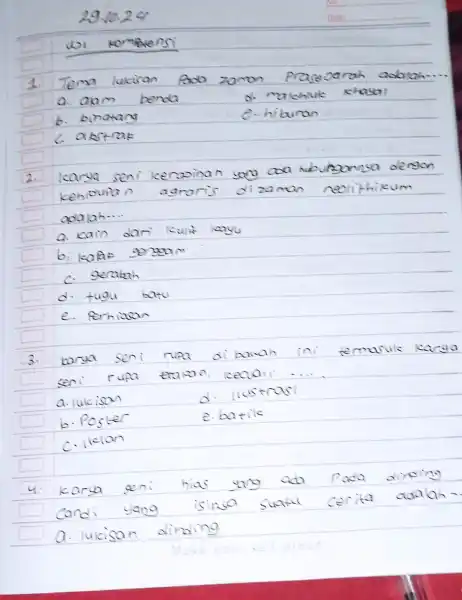 29.10.24
Uji Kompetensi
1. Tema lukisan Pada zaman Prasejarah adalah....
a. alam benda d. makhluk khayal
b. binatang e. hiburan
c. abstrak
2. karya seni kerajinan yang ada hubungannya dengan
kehidupan agraris di zaman neolithikum
adalah....
a. kain dari kulit kayu
b. kapak genggam
c. gerabah
d. tugu batu
e. Perhiasan
3. karya seni rupa di bawah ini termasuk karya
seni rupa terapan, kecuali ....
a. lukisan d. ilustrasi
b. Poster e. batik
c. iklan
4. karya seni hias yang ada Pada dinding
Candi yang isinya suatu cerita adalah..
a. lukisan dinding